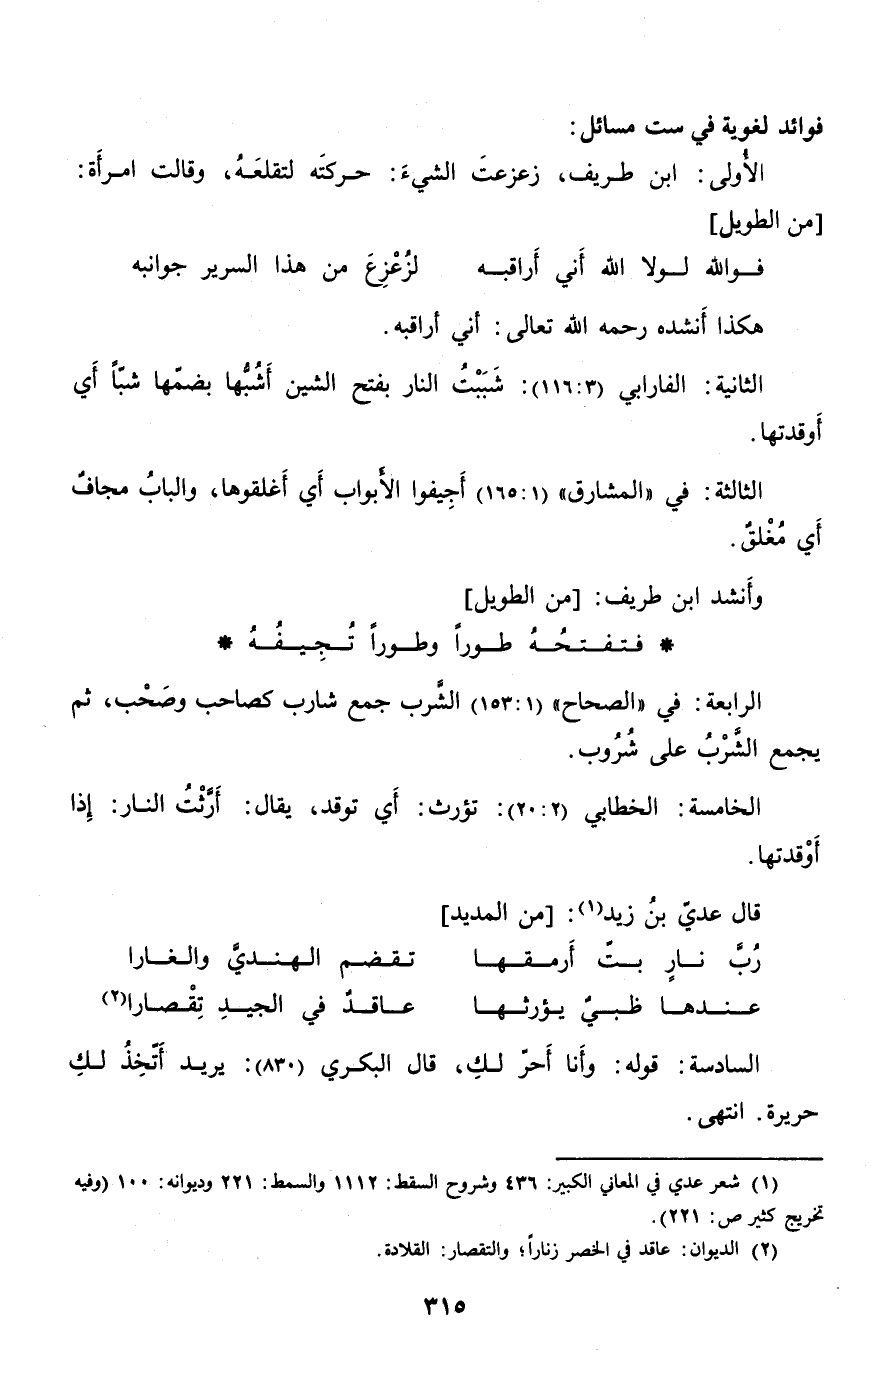 فوائد لغوية في ست مسائل:
الأُولى: ابن طريف، زعزعتَ الشيءَ: حركتَه لتقلعَهُ، وقالت امرأَة:
[من الطويل]
فوالله لولا الله أَني أَراقبه لزُعْزِعَ من هذا السرير جوانبه
هكذا أَنشده رحمه الله تعالى: أَني أراقبه.
الثانية: الفارابي (٣:١١٦): شَبَبْتُ النار بفتح الشين أَشُبُّها بضمّها شبّاً أَي
أَوقدتها.
الثالثة: في «المشارق» (١:١٦٥) أَجِيفوا الأَبواب أَي أَغلقوها، والبابُ مجافٌ
أَي مُغْلقٌ.
وأَنشد ابن طريف: [من الطويل]
* فتفتحُهُ طوراً وطوراً تُجِيفُهُ *
الرابعة: في «الصحاح» (١:١٥٣) الشَّرب جمع شارب كصاحب وصَحْب، ثم
يجمع الشَّرْبُ على شُرُوب.
الخامسة: الخطابي (٢:٢٠): تؤرث: أَي توقد، يقال: أَرَّثْتُ النار: إِذا
أَوْقدتها.
قال عديّ بنُ زيد(١): [من المديد]
رُبَّ نارٍ بتّ أَرمقها تقضم الهنديَّ والغارا
عندها ظبيٌ يؤرثها عاقدٌ في الجيدِ تِقْصارا(٢)
السادسة: قوله: وأَنا أَحرّ لكِ، قال البكري (٨٣٠): يريد أَتّخِذُ لكِ
حريرة. انتهى.
(١) شعر عدي في المعاني الكبير: ٤٣٦ وشروح السقط: ١١١٢ والسمط: ٢٢١ وديوانه: ١٠٠ (وفيه
تخريج كثير ص: ٢٢١).
(٢) الديوان: عاقد في الخصر زناراً؛ والتقصار: القلادة.
٣١٥